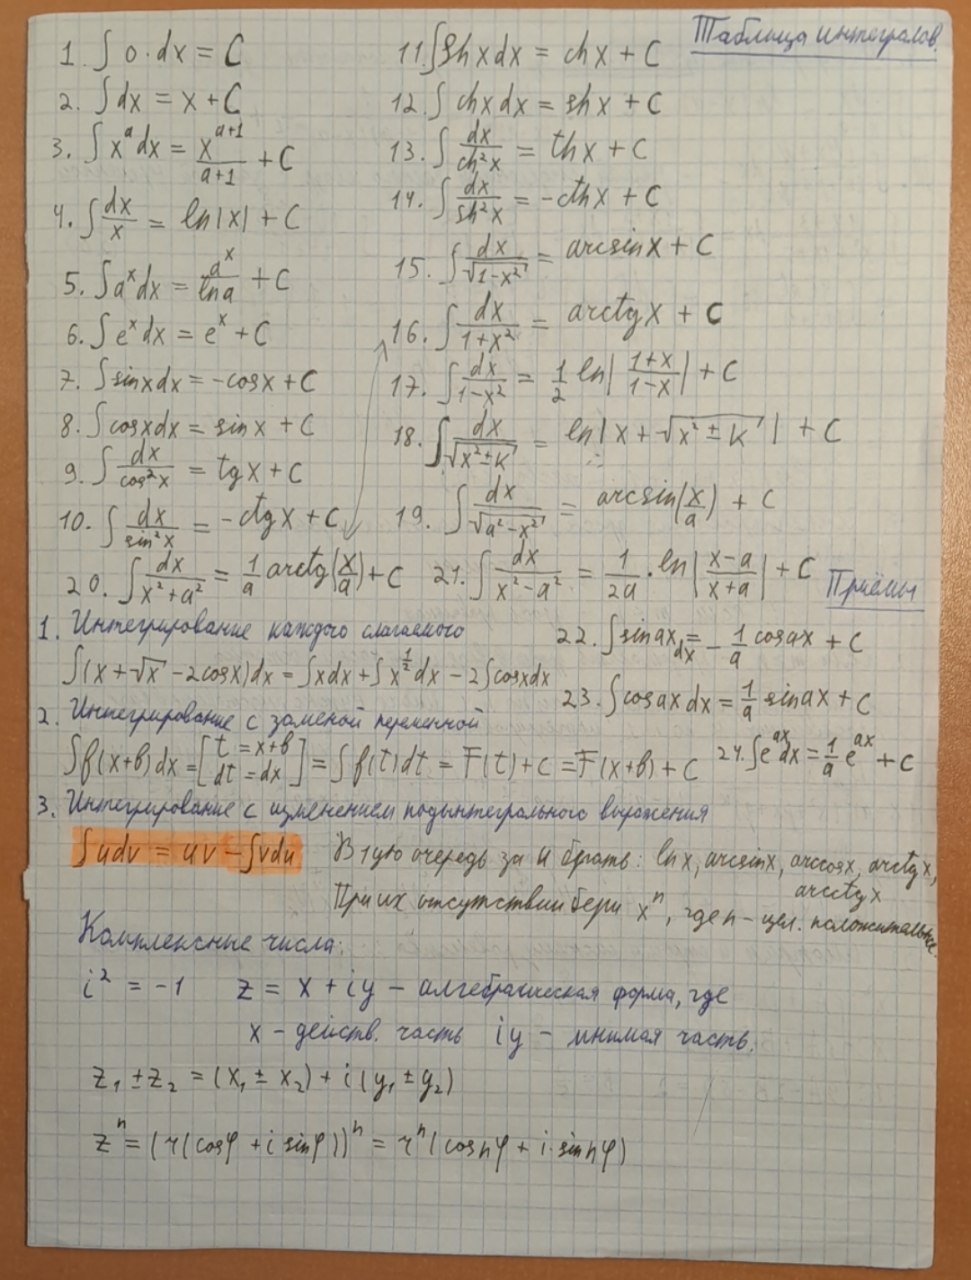 Таблица интегралов
1. ∫ 0·dx = C
2. ∫ dx = x + C
3. ∫ xᵃ dx = xᵃ⁺¹/(a+1) + C
4. ∫ dx/x = ln|x| + C
5. ∫ aˣ dx = aˣ/ln a + C
6. ∫ eˣ dx = eˣ + C
7. ∫ sinx dx = -cosx + C
8. ∫ cosx dx = sinx + C
9. ∫ dx/cos²x = tgx + C
10. ∫ dx/sin²x = -ctgx + C
11. ∫ shx dx = chx + C
12. ∫ chx dx = shx + C
13. ∫ dx/ch²x = thx + C
14. ∫ dx/sh²x = -cthx + C
15. ∫ dx/√(1-x²) = arcsinx + C
16. ∫ dx/(1+x²) = arctgx + C
17. ∫ dx/(1-x²) = 1/2 ln|(1+x)/(1-x)| + C
18. ∫ dx/√(x²±K) = ln|x + √(x²±K)| + C
19. ∫ dx/√(a²-x²) = arcsin(x/a) + C
20. ∫ dx/(x²+a²) = 1/a arctg(x/a) + C
21. ∫ dx/(x²-a²) = 1/2a · ln|(x-a)/(x+a)| + C
Приёмы
1. Интегрирование каждого слагаемого
∫(x + √x - 2cosx)dx = ∫xdx + ∫x^(1/2) dx - 2∫cosxdx
22. ∫ sinax dx = -1/a cosax + C
23. ∫ cosax dx = 1/a sinax + C
2. Интегрирование с заменой переменной
∫f(x+b)dx = [t = x+b dt = dx] = ∫f(t)dt = F(t) + C = F(x+b) + C
24. ∫ eᵃˣ dx = 1/a eᵃˣ + C
3. Интегрирование с изменением подынтегрального выражения
∫udv = uv - ∫vdu
В 1ую очередь за u брать: lnx, arcsinx, arccosx, arctgx,
arcctgx
При их отсутствии бери xⁿ, где n - цел. положительное
Комплексные числа:
i² = -1 z = x + iy - алгебраическая форма, где
x - действ. часть iy - мнимая часть.
z₁ ± z₂ = (x₁ ± x₂) + i(y₁ ± y₂)
zⁿ = (r(cosφ + i sinφ))ⁿ = rⁿ(cosnφ + i·sinnφ)